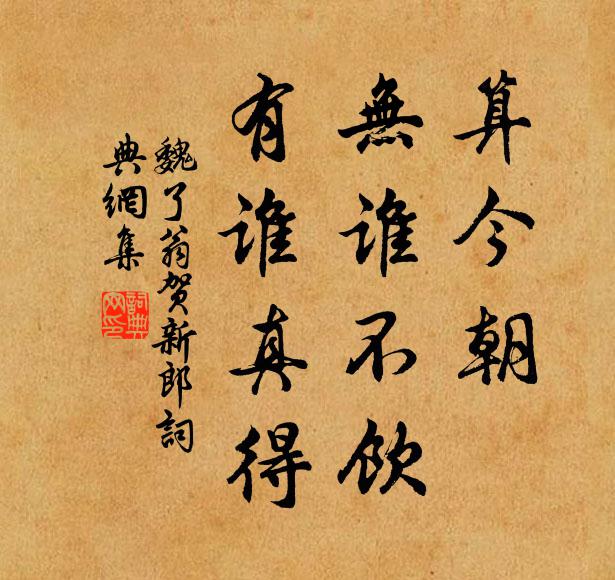 算今朝
無誰不飲
有誰真得
魏了翁賀新郎詞
典網集
詞典網印